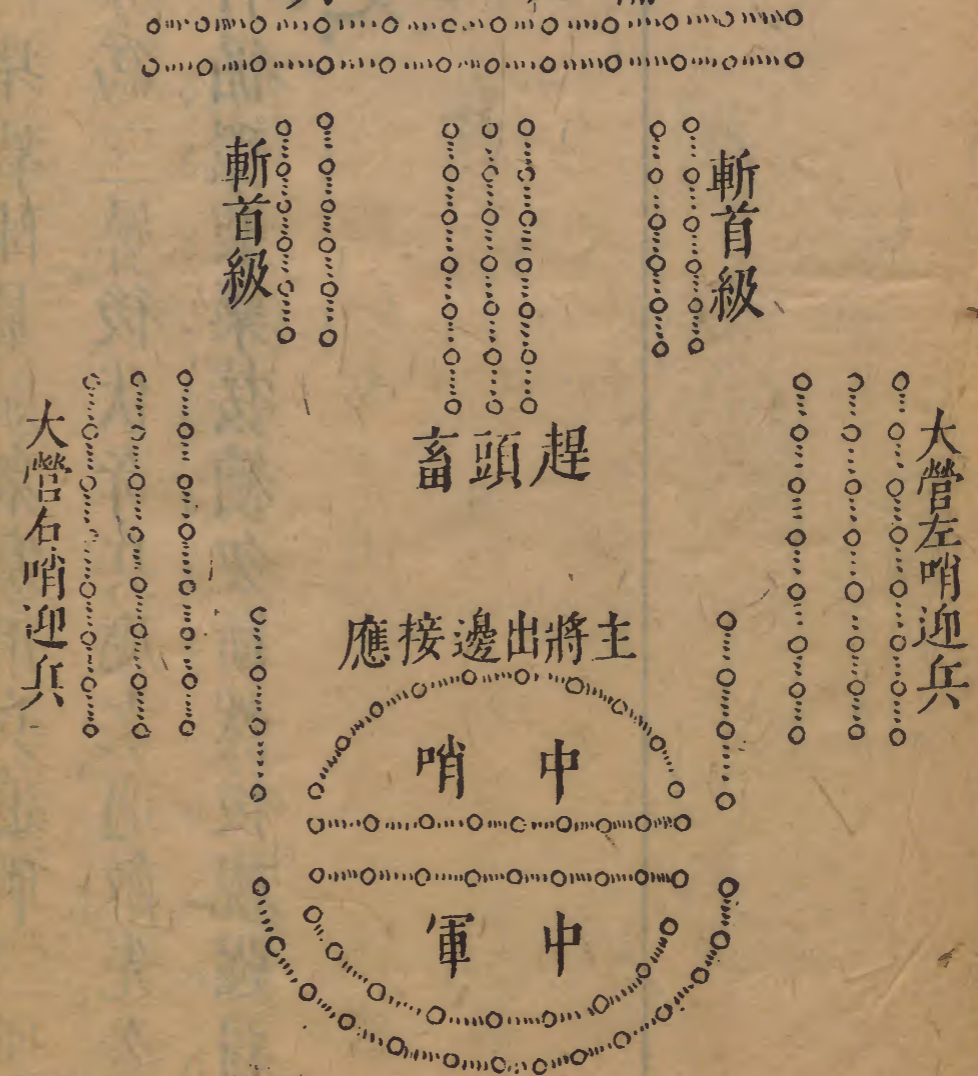 斬首級
斬首級
趕頭畜
大營左哨迎兵
大營右哨迎兵
主將出邊接應
中哨
中軍